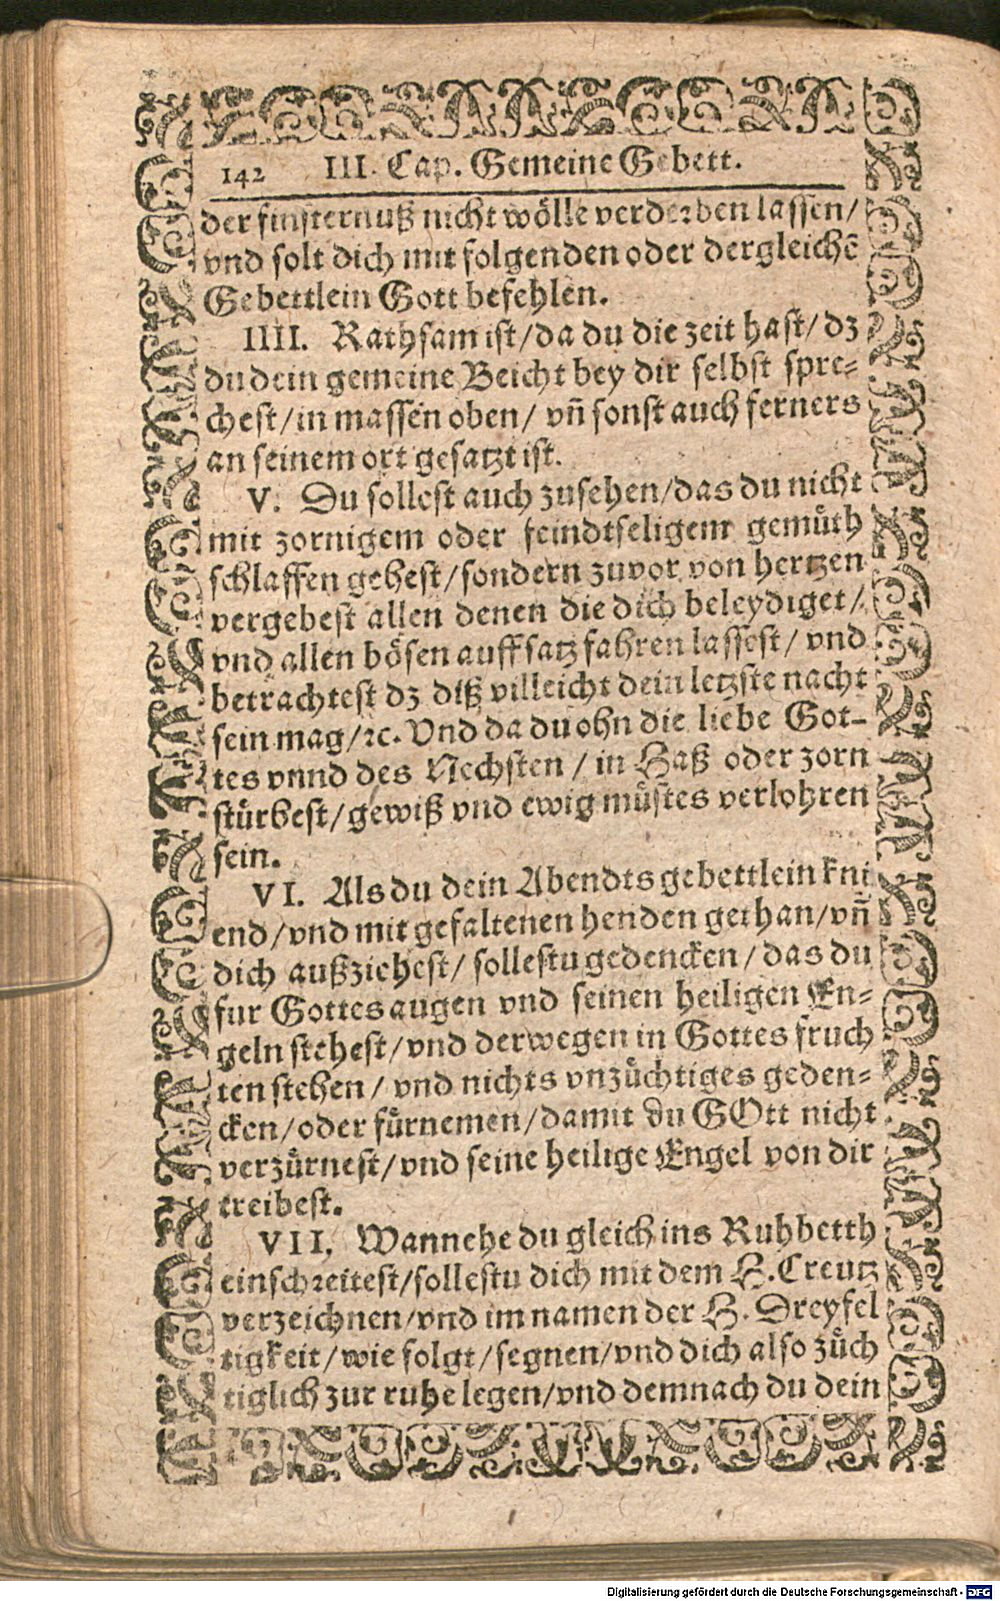 142 III. Cap. Gemeine Gebett.
der finsternuß nicht wölle verderben lassen/
vnd solt dich mit folgenden oder dergleichē
Gebettlein Gott befehlen.
IIII. Rathsam ist/da du die zeit hast/dz
du dein gemeine Beicht bey dir selbst spre-
chest/in massen oben/ vn̄ sonst auch ferners
an seinem ort gesatzt ist.
V. Du sollest auch zusehen/das du nicht
mit zornigem oder feindtseligem gemüth
schlaffen gehest/sondern zuvor von hertzen
vergebest allen denen die dich beleydiget/
vnd allen bösen auffsatz fahren lassest/ vnd
betrachtest dz diß villeicht dein letzste nacht
sein mag/ꝛc. Vnd da du ohn die liebe Got-
tes vnnd des Nechsten / in Haß oder zorn
stürbest/gewiß vnd ewig müstes verlohren
sein.
VI. Als du dein Abendtsgebettlein kni
end/vnd mit gefaltenen henden gethan/vn̄
dich außziehest/ sollestu gedencken/das du
fur Gottes augen vnd seinen heiligen En-
geln stehest/vnd derwegen in Gottes fruch
ten stehen/ vnd nichts vnzüchtiges geden-
cken/oder fürnemen/damit du GOtt nicht
verzürnest/vnd seine heilige Engel von dir
treibest.
VII. Wannehe du gleich ins Ruhbetth
einschreitest/sollestu dich mit dem H. Creutz
verzeichnen/vnd im namen der H. Dreyfel
tigkeit/wie folgt/segnen/vnd dich also züch
tiglich zur ruhe legen/vnd demnach du dein
Digitalisierung gefördert durch die Deutsche Forschungsgemeinschaft - DFG